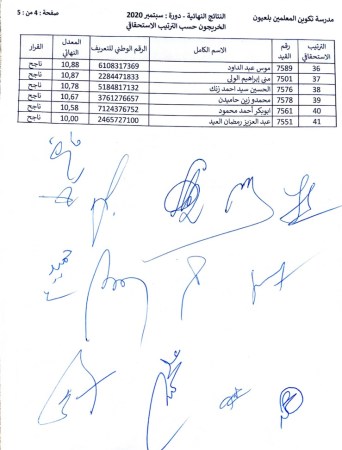 مدرسة تكوين المعلمين بلعيون
النتائج النهائية - دورة : سبتمبر 2020
صفحة : 4 من : 5
الخريجون حسب الترتيب الاستحقاقي
الترتيب الاستحقاقي رقم القيد الاسم الكامل الرقم الوطني للتعريف المعدل النهائي القرار
36 7589 موس عبد الداود 6108317369 10,88 ناجح
37 7501 مني إبراهيم الولي 2284471833 10,87 ناجح
38 7576 الحسين سيد احمد زنك 5184817132 10,78 ناجح
39 7578 محمدو زين حاميدن 3761276657 10,67 ناجح
40 7561 ابوبكر أحمد محمود 7124376752 10,58 ناجح
41 7551 عبد العزيز رمضان العيد 2465727100 10,00 ناجح